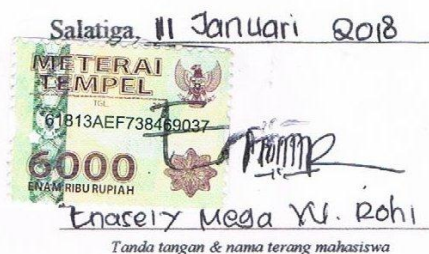 Salatiga, 11 Januari 2018
METERAI
TEMPEL
TGL.
61813AEF738469037
6000
ENAM RIBU RUPIAH
Enasely Mega W. Rohi
Tanda tangan & nama terang mahasiswa